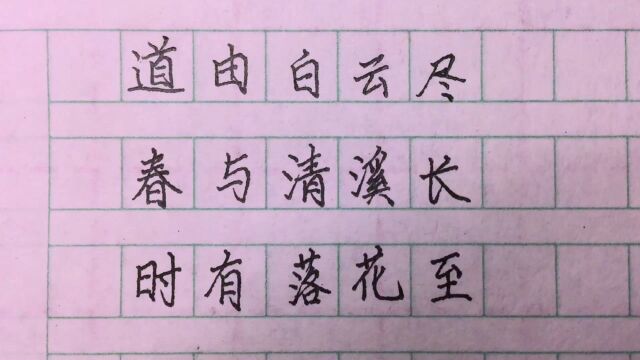 道由白云尽
春与清溪长
时有落花至